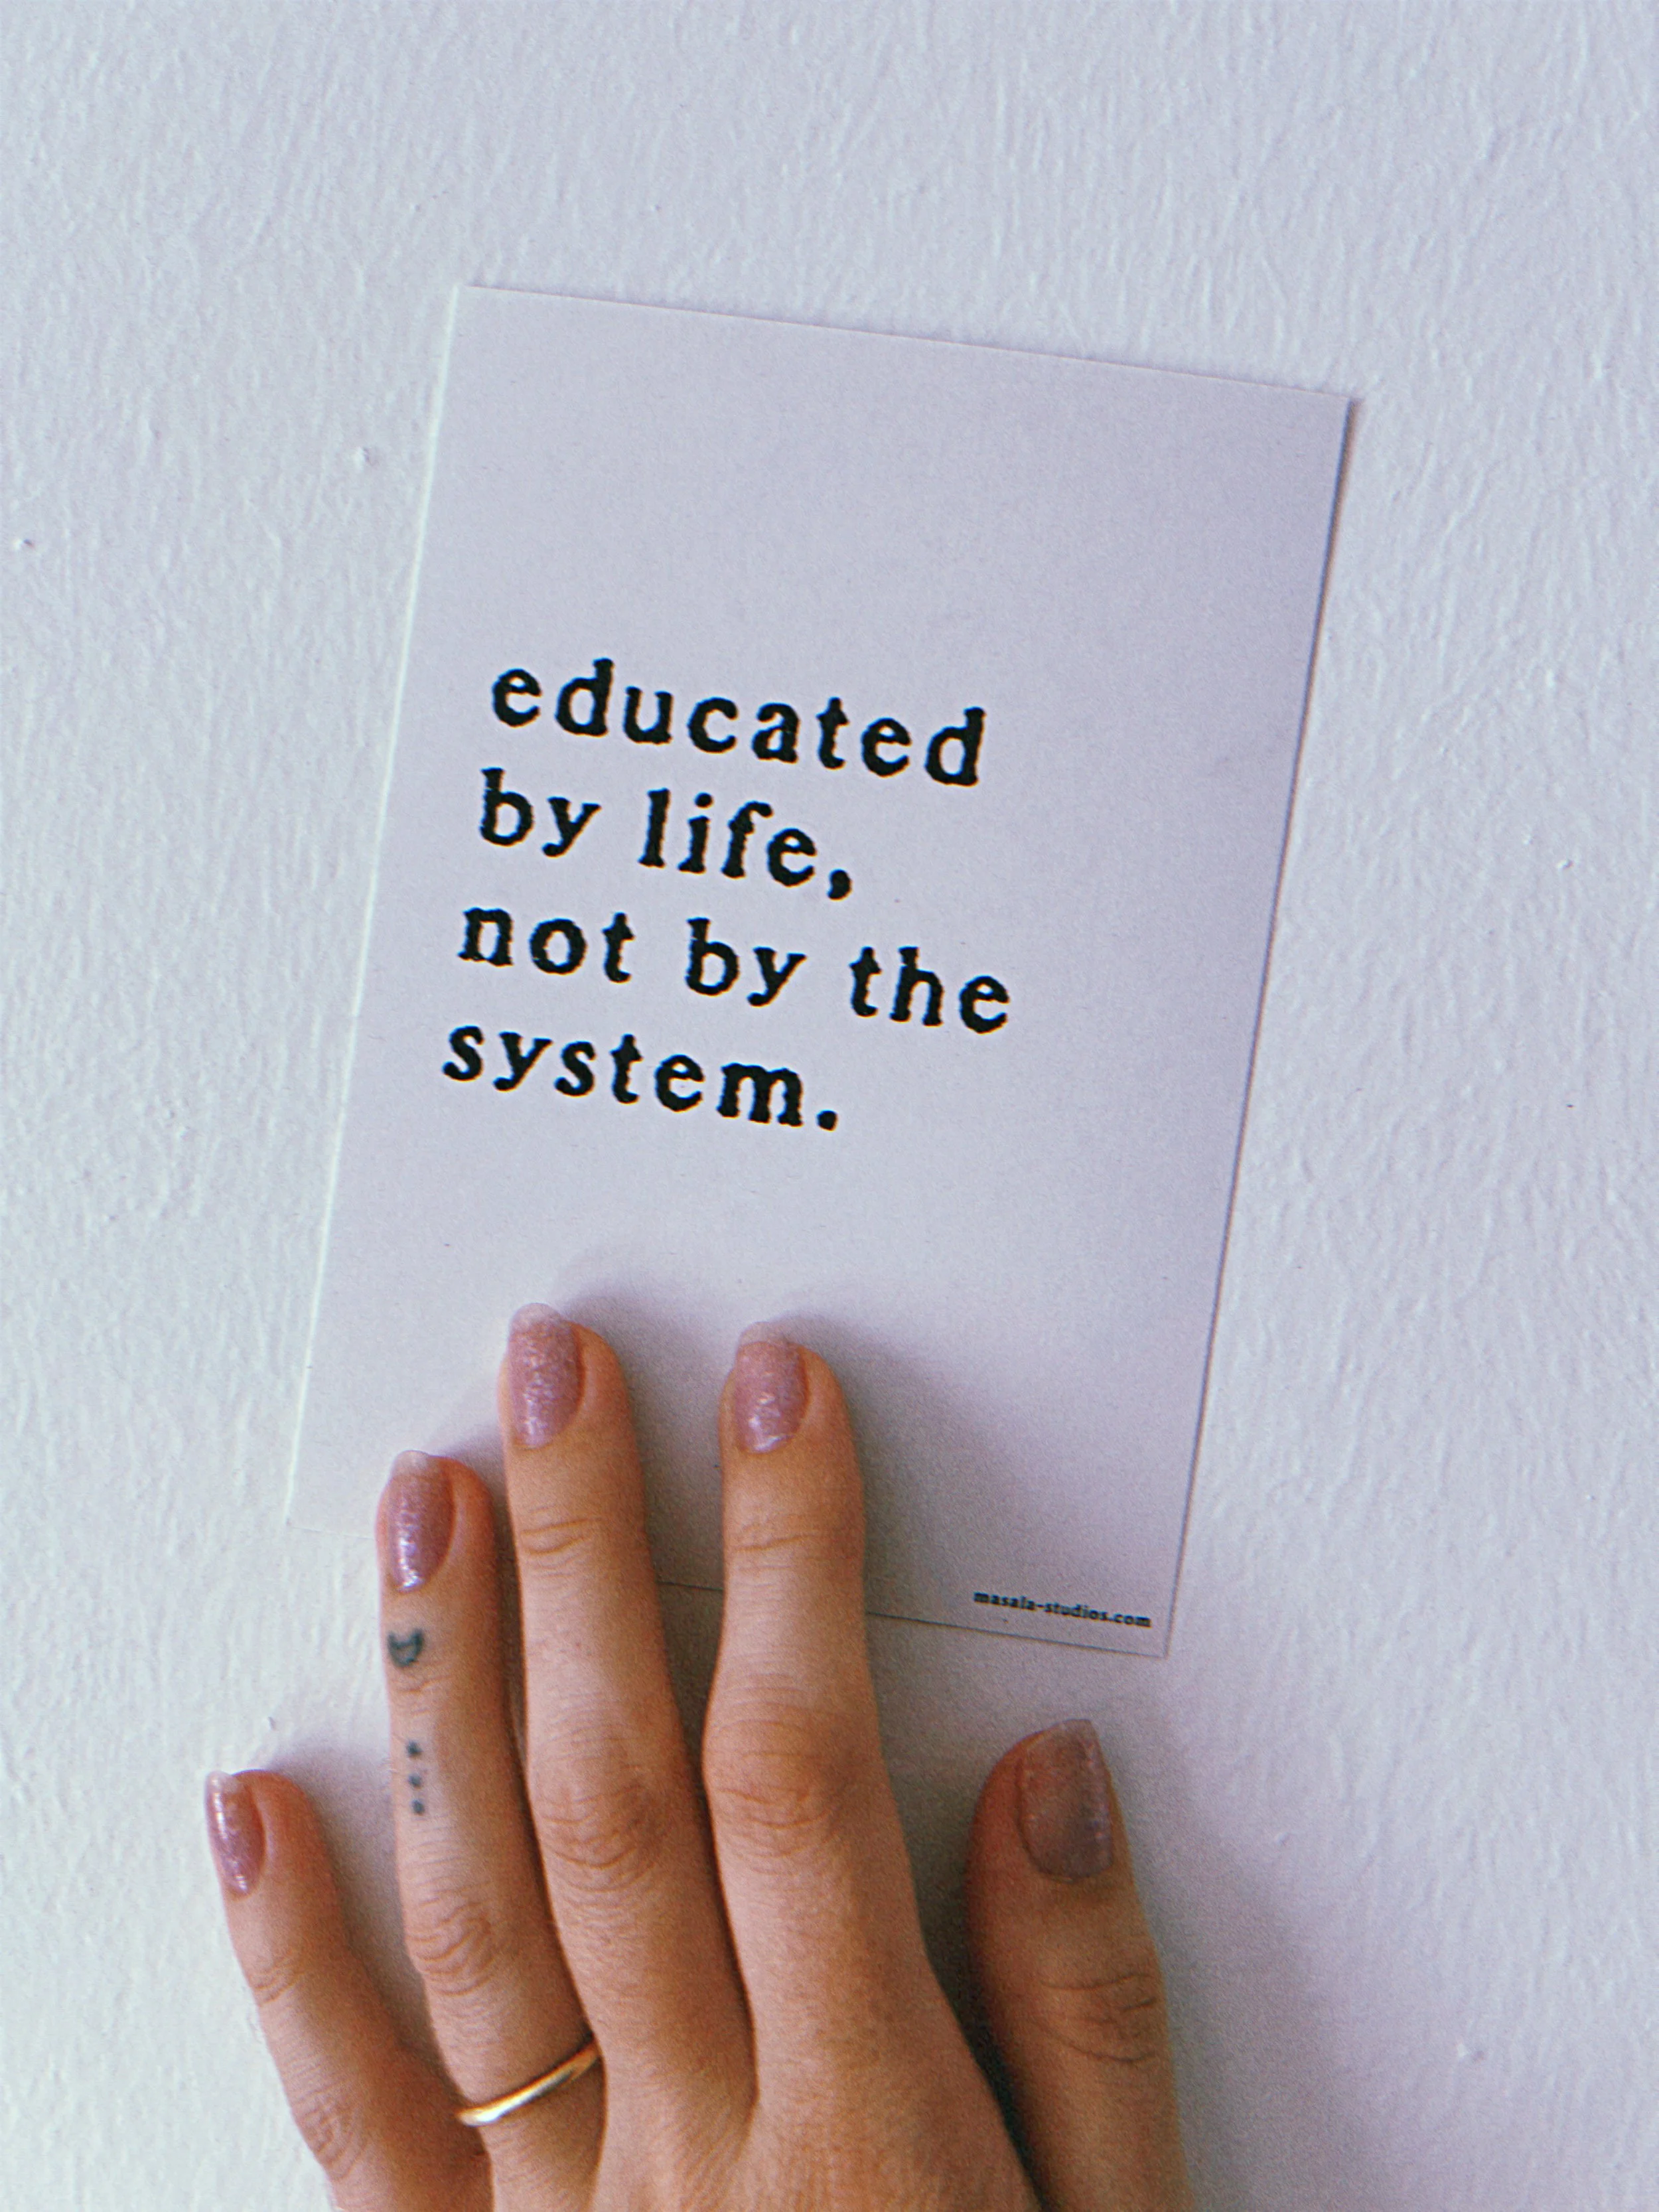 educated
by life,
not by the
system.
masala-studios.com